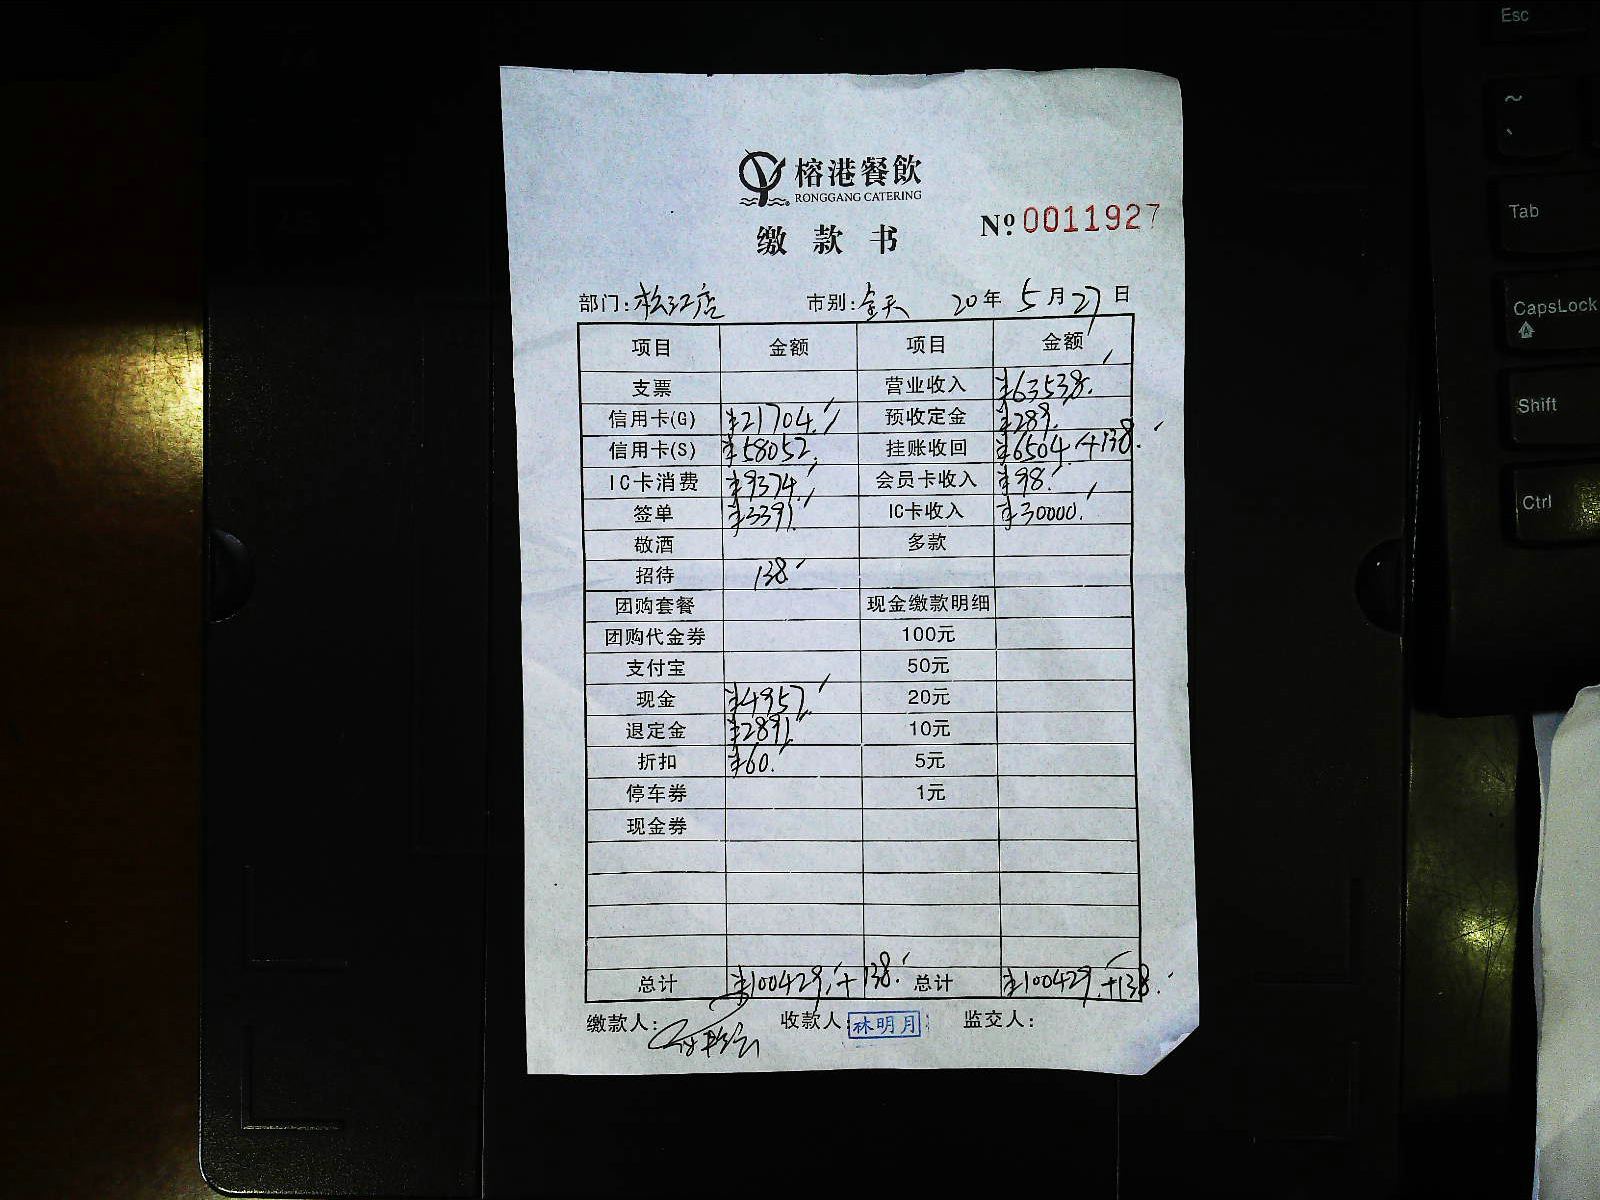 Esc
~
`
Tab
CapsLock
Shift
Ctrl
榕港餐飲
RONGGANG CATERING
缴款书
№ 0011927
部门:松江店 市别:全天 20年 5月 27日
项目 金额 项目 金额
支票 营业收入 ¥63538.
信用卡(G) ¥21704. 预收定金 ¥289.
信用卡(S) ¥58052. 挂账收回 ¥6504.+138.
IC卡消费 ¥9374. 会员卡收入 ¥98.
签单 ¥3391. IC卡收入 ¥30000.
敬酒 多款
招待 138
团购套餐 现金缴款明细
团购代金券 100元
支付宝 50元
现金 ¥4957. 20元
退定金 ¥2891. 10元
折扣 ¥60. 5元
停车券 1元
现金券
总计 ¥100429.+138. 总计 ¥100429.+138.
缴款人: 收款人:林明月 监交人: